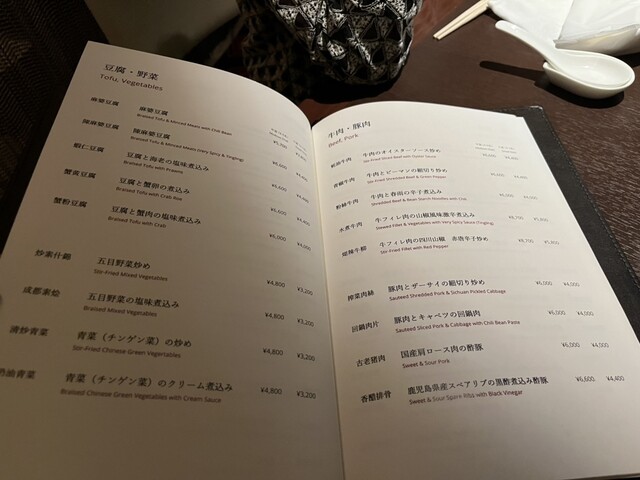 豆腐・野菜
Tofu, Vegetables
麻婆豆腐 麻婆豆腐
Braised Tofu & Minced Meats with Chili Bean
陳麻婆豆腐 陳麻婆豆腐 ¥5,700
Braised Tofu & Minced Meats (Very Spicy & Tingling)
蝦仁豆腐 豆腐と海老の塩味煮込み ¥6,600 ¥4,400
Braised Tofu with Prawns
蟹黄豆腐 豆腐と蟹卵の煮込み ¥6,600 ¥4,400
Braised Tofu with Crab Roe
蟹粉豆腐 豆腐と蟹肉の塩味煮込み ¥6,000 ¥4,000
Braised Tofu with Crab
炒素什錦 五目野菜炒め ¥4,800 ¥3,200
Stir-Fried Mixed Vegetables
成都素烩 五目野菜の塩味煮込み ¥4,800 ¥3,200
Braised Mixed Vegetables
清炒青菜 青菜(チンゲン菜)の炒め ¥4,800 ¥3,200
Stir-Fried Chinese Green Vegetables
奶油青菜 青菜(チンゲン菜)のクリーム煮込み ¥4,800 ¥3,200
Braised Chinese Green Vegetables with Cream Sauce
牛肉・豚肉
Beef, Pork
蚝油牛肉 牛肉のオイスターソース炒め
Stir-Fried Sliced Beef with Oyster Sauce
青椒牛肉 牛肉とピーマンの細切り炒め
Stir-Fried Shredded Beef & Green Pepper
粉絲牛肉 牛肉と春雨の辛子煮込み
Shredded Beef & Bean Starch Noodles with Chili
水煮牛肉 牛フィレ肉の山椒風味激辛煮込み ¥8,700 ¥5,800
Stewed Fillet & Vegetables with Very Spicy Sauce (Tingling)
牛フィレ肉の四川山椒 赤唐辛子炒め ¥8,700 ¥5,800
Stir-Fried Fillet with Red Pepper
搾菜肉絲 豚肉とザーサイの細切り炒め ¥6,000 ¥4,000
Sauteed Shredded Pork & Sichuan Pickled Cabbage
回鍋肉片 豚肉とキャベツの回鍋肉 ¥6,000 ¥4,000
Sauteed Sliced Pork & Cabbage with Chili Bean Paste
古老猪肉 国産肩ロース肉の酢豚 ¥6,000 ¥4,000
Sweet & Sour Pork
香醋排骨 鹿児島県産スペアリブの黒酢煮込み酢豚 ¥6,600 ¥4,400
Sweet & Sour Spare Ribs with Black Vinegar